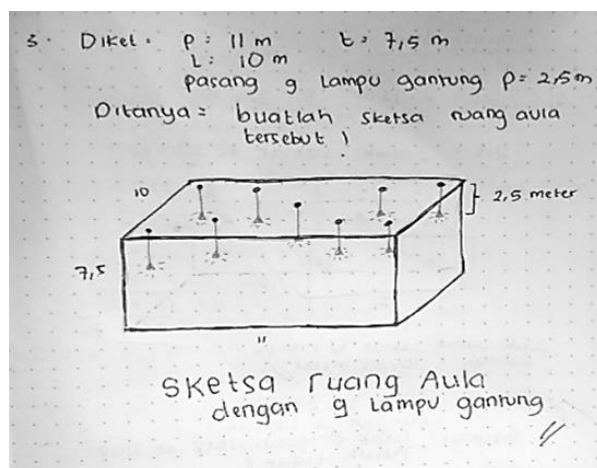 3. Diket : P : 11 m t : 7,5 m
L : 10 m
pasang 9 Lampu gantung P = 2,5m
Ditanya = buatlah sketsa ruang aula
tersebut !
10
2,5 meter
7,5
11
Sketsa ruang Aula
dengan 9 Lampu gantung